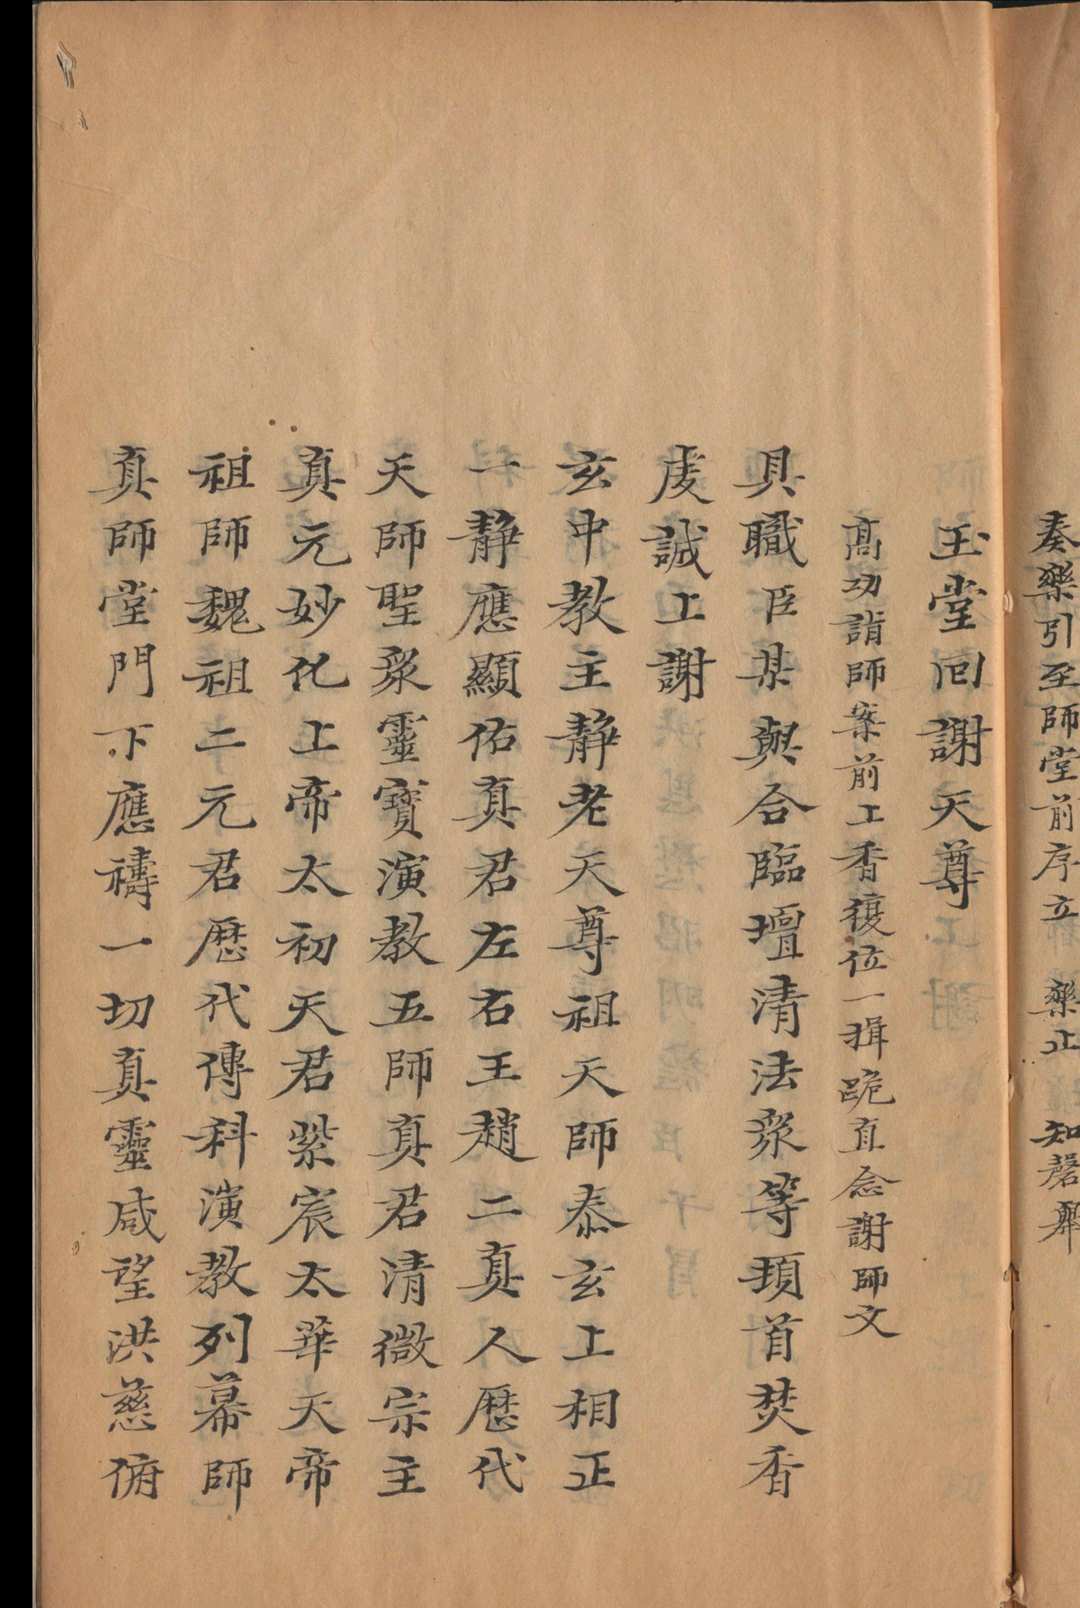 奏樂引至師堂前序立 樂止 知磬舉
玉堂回謝天尊
高功詣師案前上香復位一揖跪直念謝師文
具職臣某與合臨壇清法衆等頓首焚香
虔誠上謝
玄中教主静老天尊祖天師泰玄上相正
一静應顯佑真君左右王趙二真人歷代
天師聖衆靈寶演教五師真君清微宗主
真元妙化上帝太初天君紫宸太華天帝
祖師魏祖二元君歷代傳科演教列幕師
真師堂門下應禱一切真靈咸望洪慈俯